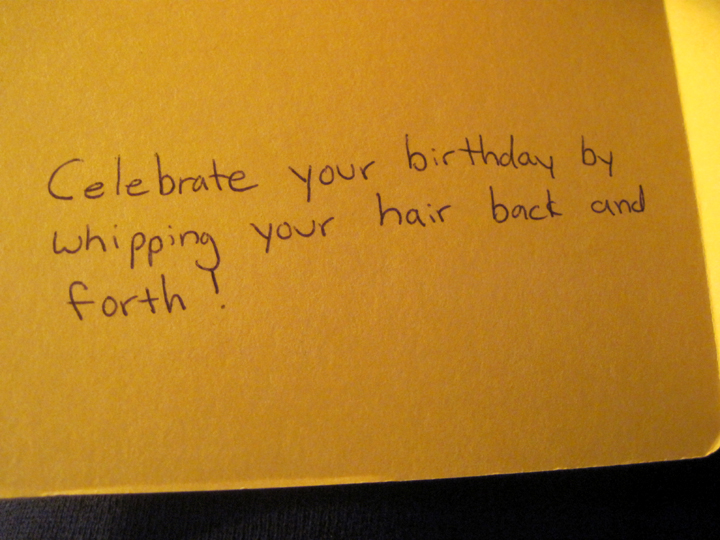 Celebrate your birthday by
whipping your hair back and
forth!